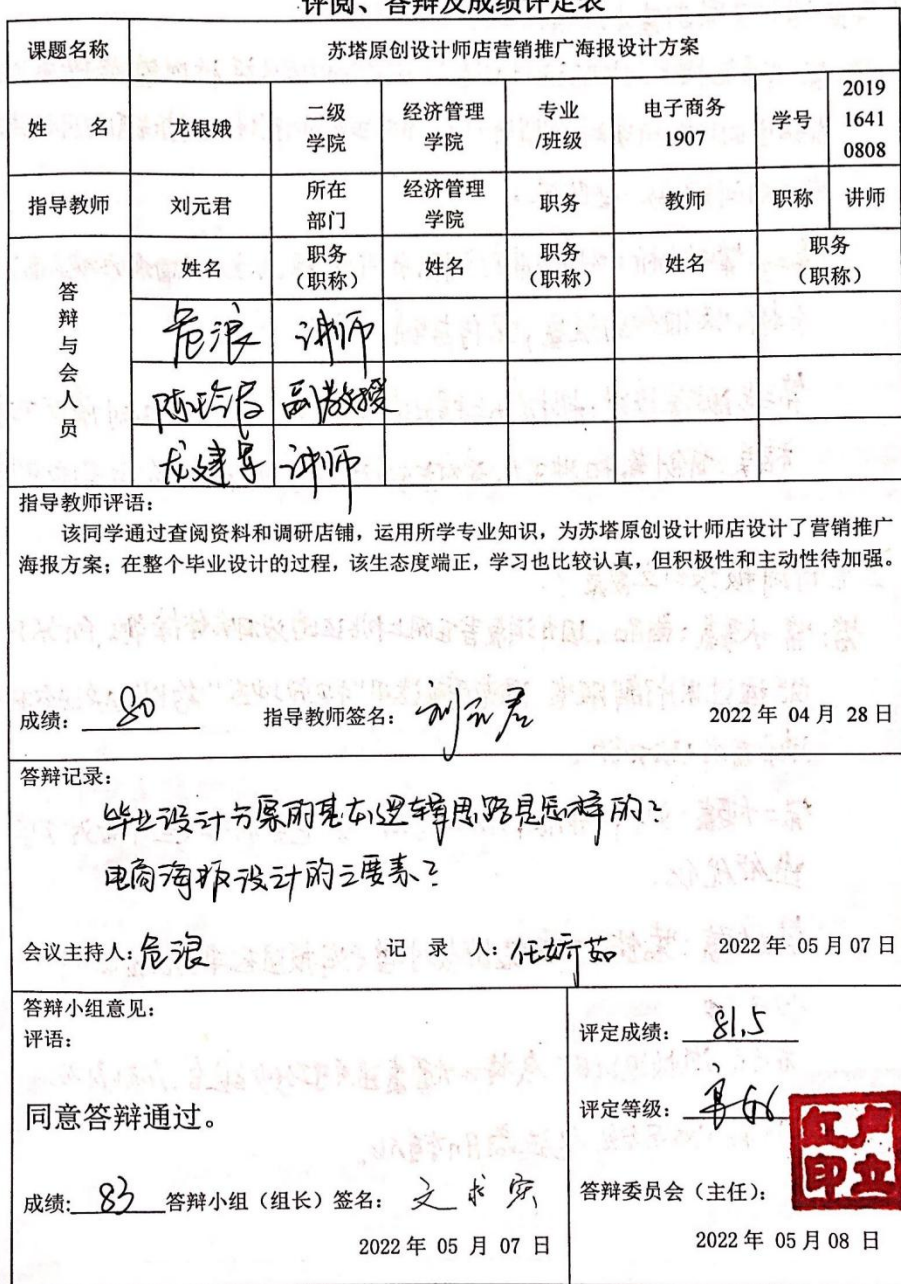 评阅、答辩及成绩评定表
课题名称 苏塔原创设计师店营销推广海报设计方案
姓 名 龙银娥 二级学院 经济管理学院 专业/班级 电子商务1907 学号 2019 1641 0808
指导教师 刘元君 所在部门 经济管理学院 职务 教师 职称 讲师
答辩与会人员 姓名 职务(职称) 姓名 职务(职称) 姓名 职务(职称)
危浪 讲师
副教授
龙建军 讲师
指导教师评语:
该同学通过查阅资料和调研店铺,运用所学专业知识,为苏塔原创设计师店设计了营销推广
海报方案;在整个毕业设计的过程,该生态度端正,学习也比较认真,但积极性和主动性待加强。
成绩: 80 指导教师签名: 刘元君 2022 年 04 月 28 日
答辩记录:
毕业设计方案的基本逻辑思路是怎样的?
电商海报设计的三要素?
会议主持人: 危浪 记 录 人: 任娇茹 2022 年 05 月 07 日
答辩小组意见:
评语:
同意答辩通过。
成绩: 83 答辩小组(组长)签名: 文求实
2022 年 05 月 07 日
评定成绩: 81.5
评定等级:
答辩委员会(主任):
2022 年 05 月 08 日